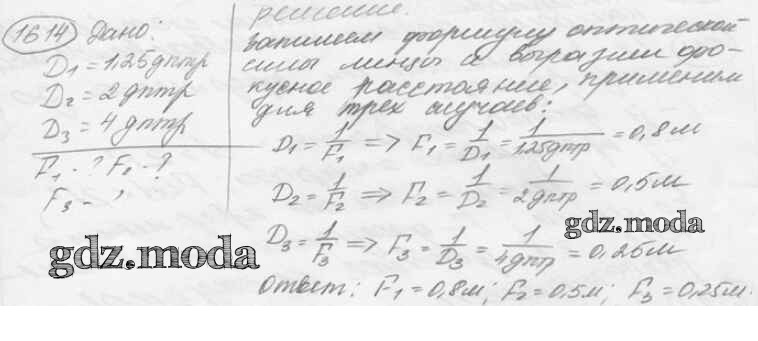 1614 Дано:
D₁ = 1,25 дптр
D₂ = 2 дптр
D₃ = 4 дптр
F₁ - ? F₂ - ?
F₃ - ?
решение.
Запишем формулу оптической
силы линзы и выразим фо-
кусное расстояние, применим
для трех случаев:
D₁ = 1/F₁ => F₁ = 1/D₁ = 1/1,25дптр = 0,8м
D₂ = 1/F₂ => F₂ = 1/D₂ = 1/2дптр = 0,5м
gdz.moda
D₃ = 1/F₃ => F₃ = 1/D₃ = 1/4дптр = 0,25м
gdz.moda
Ответ: F₁ = 0,8м; F₂ = 0,5м; F₃ = 0,25м.